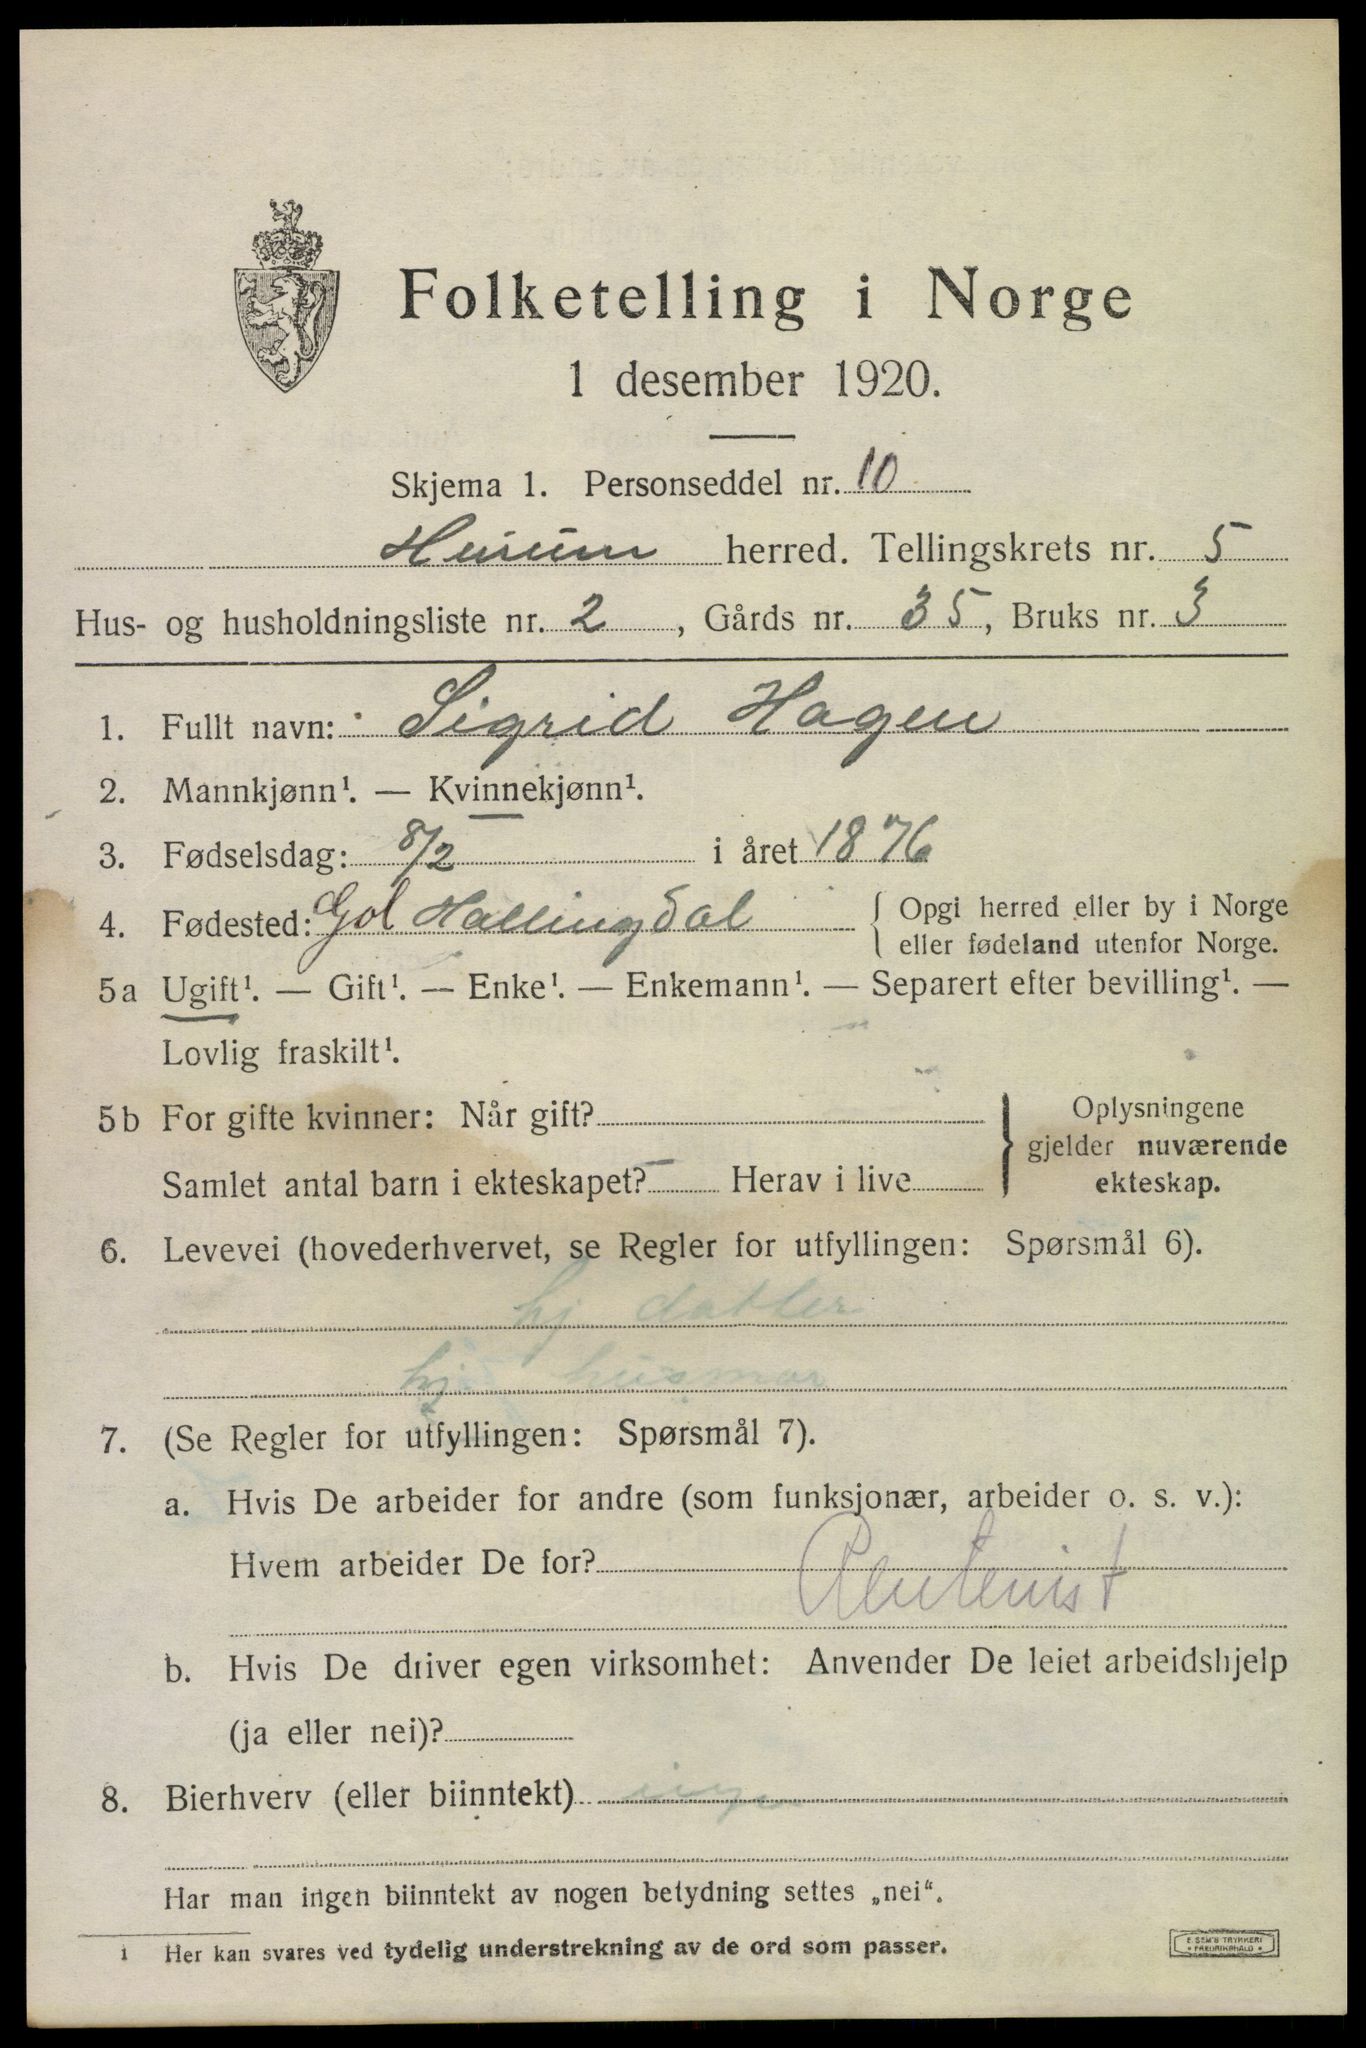 Folketelling i Norge
1 desember 1920.
Skjema 1. Personseddel nr. 10
Hurum herred. Tellingskrets nr. 5
Hus- og husholdningsliste nr. 2, Gårds nr. 35, Bruks nr. 3
1. Fullt navn: Sigrid Hagen
2. Mannkjønn¹. — Kvinnekjønn¹.
3. Fødselsdag: 8/2 i året 1876
4. Fødested: Gol Hallingdal { Opgi herred eller by i Norge
eller fødeland utenfor Norge.
5a Ugift¹. — Gift¹. — Enke¹. — Enkemann¹. — Separert efter bevilling¹. —
Lovlig fraskilt¹.
5b For gifte kvinner: Når gift?
Samlet antal barn i ekteskapet? Herav i live
} Oplysningene
gjelder nuværende
ekteskap.
6. Levevei (hovederhvervet, se Regler for utfyllingen: Spørsmål 6).
hj datter
hj husmor
7. (Se Regler for utfyllingen: Spørsmål 7).
a. Hvis De arbeider for andre (som funksjonær, arbeider o. s. v.):
Hvem arbeider De for?
Rentenist
b. Hvis De driver egen virksomhet: Anvender De leiet arbeidshjelp
(ja eller nei)?
8. Bierhverv (eller biinntekt)
Har man ingen biinntekt av nogen betydning settes „nei“.
1 Her kan svares ved tydelig understrekning av de ord som passer.
E. SEM'S TRYKKERI
• FREDRIKSHALD •